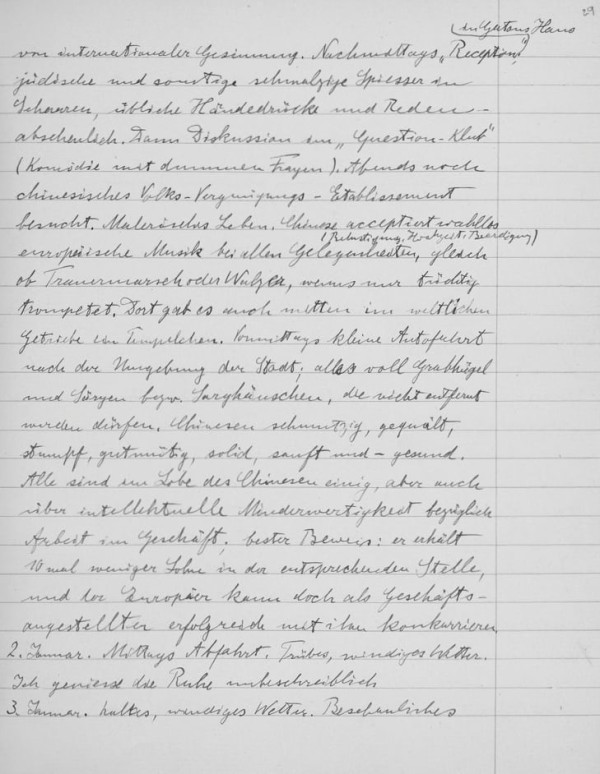 29
(in Gatons Haus
von internationaler Gesinnung. Nachmittags „Reception",
jüdische und sonstige schmalzige Spiesser in
Scharen, übliche Händedrücke und Reden –
abscheulich. Dann Diskussion im „Question-Klub"
(Komödie mit dummen Fragen). Abends noch
chinesisches Volks-Vergnügungs-Etablissement
besucht. Malerisches Leben. Chinese acceptiert wahllos
(Belustigung, Hochzeit, Beerdigung)
europäische Musik bei allen Gelegenheiten, gleich
ob Trauermarsch oder Walzer, wenns nur tüchtig
trompetet. Dort gab es auch mitten im weltlichen
Getriebe ein Tempelchen. Vormittags kleine Autofahrt
nach der Umgebung der Stadt; alles voll Grabhügel
und Särgen bezw. Sarghäuschen, die nicht entfernt
werden dürfen. Chinesen schmutzig, gequält,
stumpf, gutmütig, solid, sanft und – gesund.
Alle sind im Lobe des Chinesen einig, aber auch
über intellektuelle Minderwertigkeit bezüglich
Arbeit im Geschäft; bester Beweis: er erhält
10 mal weniger Lohn in der entsprechenden Stelle,
und der Europäer kann doch als Geschäfts-
angestellter erfolgreich mit ihm konkurrieren
2. Januar. Mittags Abfahrt. Trübes, windiges Wetter.
Ich geniesse die Ruhe unbeschreiblich
3. Januar. kaltes, windiges Wetter. Beschauliches